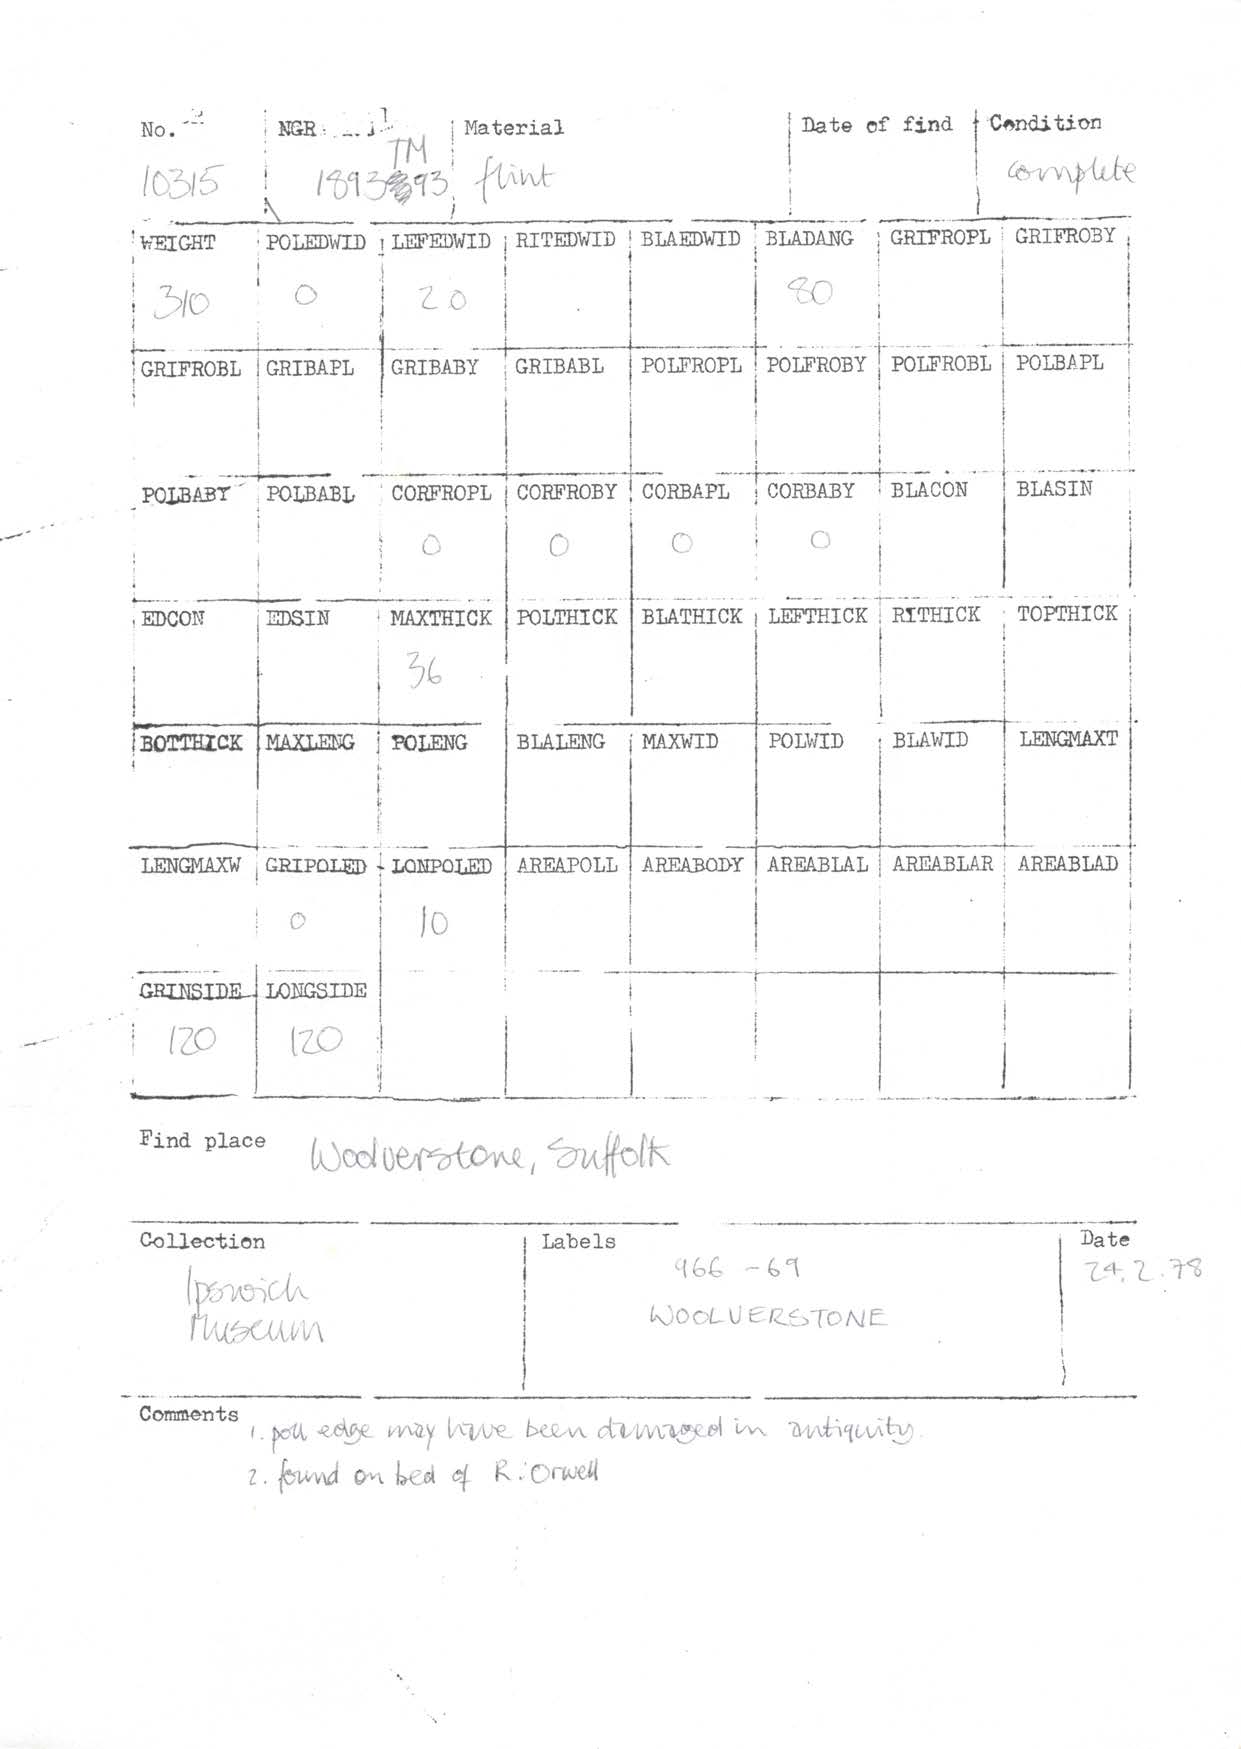 No. NGR Material Date of find Condition
TM
10315 1893 93 flint complete
WEIGHT POLEDWID LEFEDWID RITEDWID BLAEDWID BLADANG GRIFROPL GRIFROBY
310 0 20 80
GRIFROBL GRIBAPL GRIBABY GRIBABL POLFROPL POLFROBY POLFROBL POLBAPL
POLBABY POLBABL CORFROPL CORFROBY CORBAPL CORBABY BLACON BLASIN
0 0 0 0
EDCON EDSIN MAXTHICK POLTHICK BLATHICK LEFTHICK RITHICK TOPTHICK
36
BOTTHICK MAXLENG POLENG BLALENG MAXWID POLWID BLAWID LENGMAXT
LENGMAXW GRIPOLED LONPOLED AREAPOLL AREABODY AREABLAL AREABLAR AREABLAD
0 10
GRINSIDE LONGSIDE
120 120
Find place Woolverstone, Suffolk
Collection Labels Date
966 -69 24.2.78
Ipswich
Museum WOOLVERSTONE
Comments 1. poll edge may have been damaged in antiquity.
2. found on bed of R. Orwell